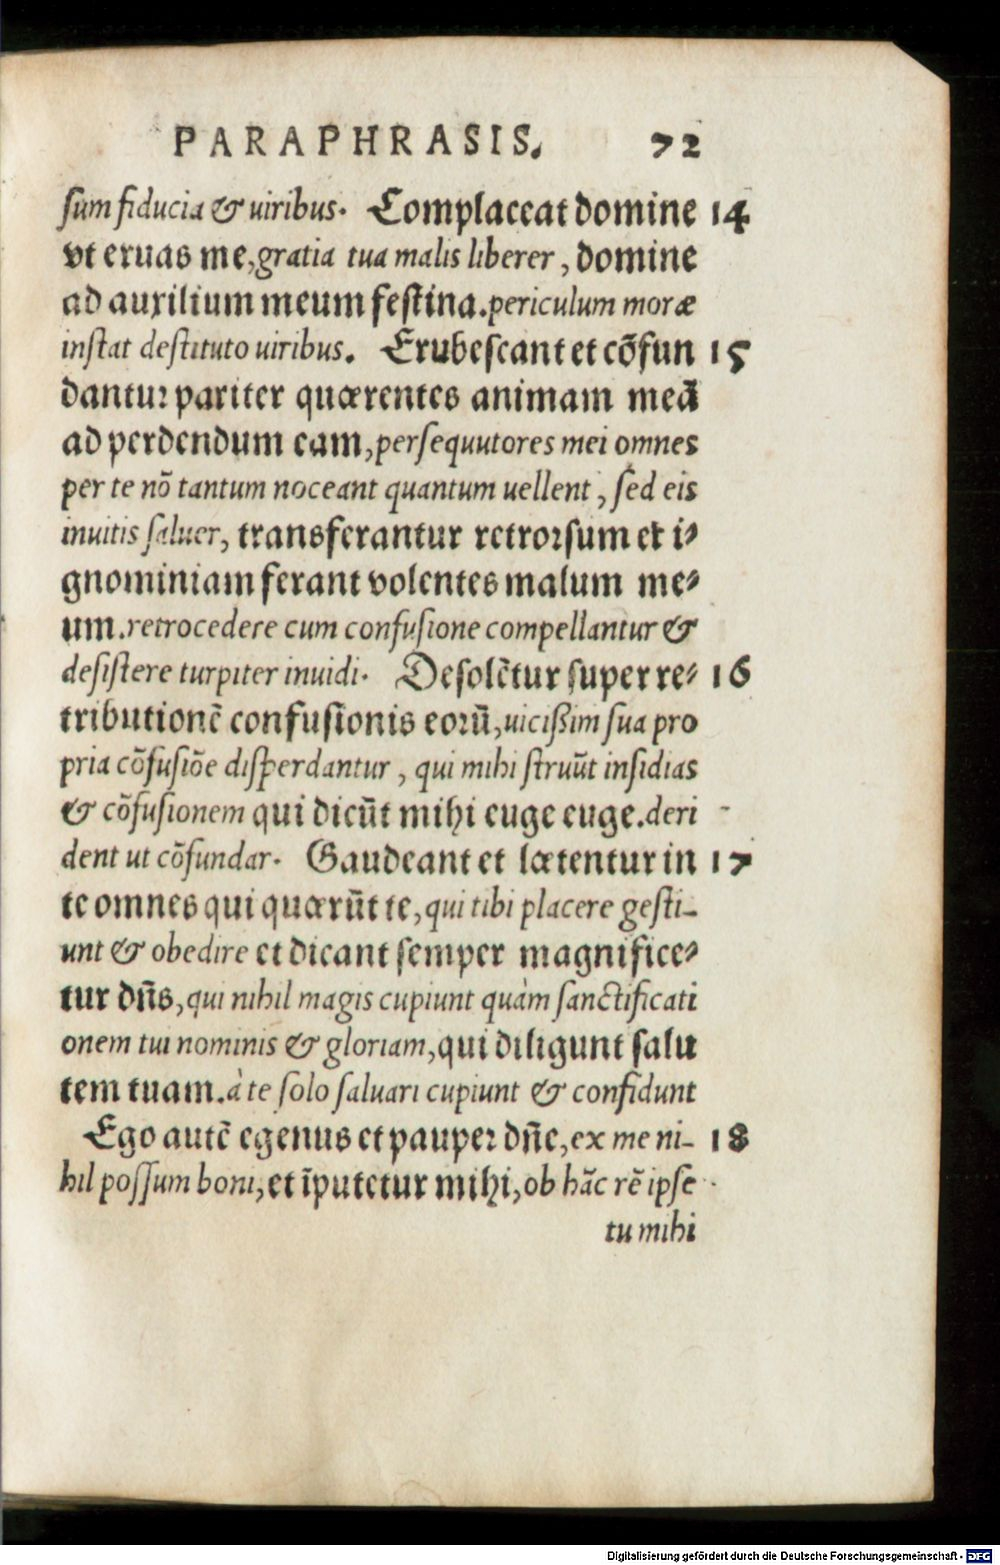 PARAPHRASIS. 72
sum fiducia & uiribus. Complaceat domine 14
vt eruas me, gratia tua malis liberer, domine
ad auxilium meum festina. periculum moræ
instat destituto uiribus. Erubescant et cõfun 15
dantur pariter quærentes animam meã
ad perdendum eam, persequutores mei omnes
per te nõ tantum noceant quantum uellent, sed eis
inuitis saluer, transferantur retrorsum et i-
gnominiam ferant volentes malum me-
um. retrocedere cum confusione compellantur &
desistere turpiter inuidi. Desolẽtur super re- 16
tributionẽ confusionis eorũ, uicißim sua pro
pria cõfusiõe disperdantur, qui mihi struũt insidias
& cõfusionem qui dicũt mihi euge euge. deri
dent ut cõfundar. Gaudeant et lætentur in 17
te omnes qui quærũt te, qui tibi placere gesti-
unt & obedire et dicant semper magnifice-
tur dñs, qui nihil magis cupiunt quàm sanctificati
onem tui nominis & gloriam, qui diligunt salu
tem tuam. à te solo saluari cupiunt & confidunt
Ego autẽ egenus et pauper dñe, ex me ni- 18
hil possum boni, et ĩputetur mihi, ob hãc rẽ ipse
tu mihi
Digitalisierung gefördert durch die Deutsche Forschungsgemeinschaft - DFG